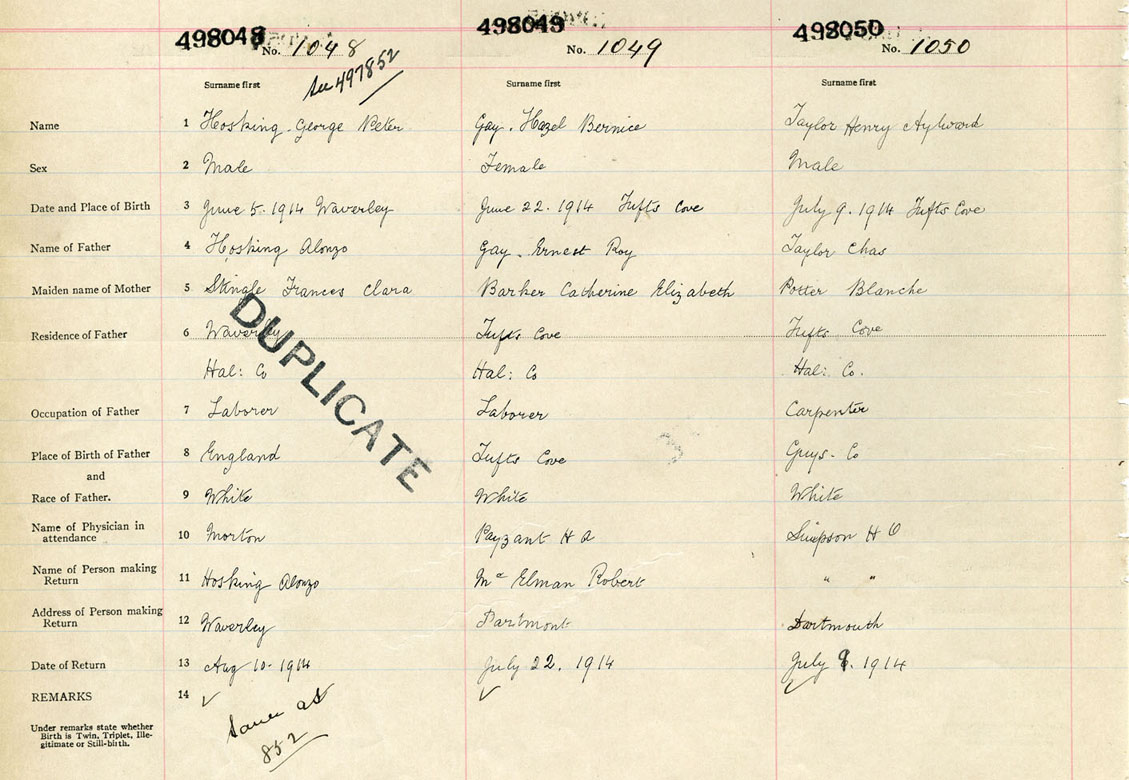 498048 498049 498050
No. 1048 No. 1049 No. 1050
See 497852
Surname first Surname first Surname first
Name 1 Hosking. George Peter Gay. Hazel Bernice Taylor Henry Aylward
Sex 2 Male Female Male
Date and Place of Birth 3 June 5. 1914 Waverley June 22. 1914 Tufts Cove July 9. 1914 Tufts Cove
Name of Father 4 Hosking Alonzo Gay. Ernest Roy Taylor Chas
Maiden name of Mother 5 Skingle Frances Clara Barker Catherine Elizabeth Porter Blanche
Residence of Father 6 Waverley Tufts Cove Tufts Cove
Hal: Co Hal: Co Hal: Co.
DUPLICATE
Occupation of Father 7 Laborer Laborer Carpenter
Place of Birth of Father 8 England Tufts Cove Guys. Co
and
Race of Father. 9 White White White
Name of Physician in
attendance 10 Morton Payzant H A Simpson H O
Name of Person making
Return 11 Hosking Alonzo Mc Elman Robert " "
Address of Person making
Return 12 Waverley Dartmouth
Date of Return 13 Aug 10. 1914 July 22. 1914 July 9. 1914
REMARKS 14 ✓ ✓ ✓
Same as
852
Under remarks state whether
Birth is Twin, Triplet, Ille-
gitimate or Still-birth.